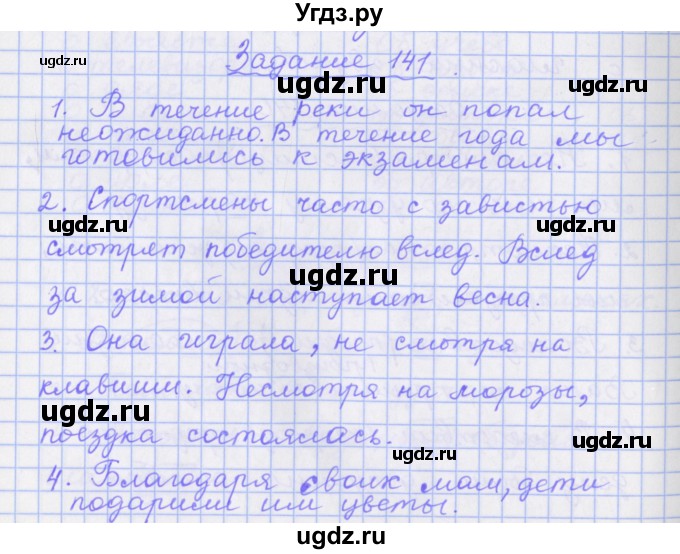 Угдз.ру
Задание 141
1. В течение реки он попал
неожиданно. В течение года мы
готовились к экзаменам.
2. Спортсмены часто с завистью
смотрят победителю вслед. Вслед
за зимой наступает весна.
3. Она играла, не смотря на
клавиши. Несмотря на морозы,
поездка состоялась.
4. Благодаря своих мам, дети
подарили им цветы.
ugdz.ru
ugdz.ru
ugdz.ru
ugdz.ru
ugdz.ru
ugdz.ru
ugdz.ru
ugdz.ru
ugdz.ru
ugdz.ru
ugdz.ru
ugdz.ru
ugdz.ru